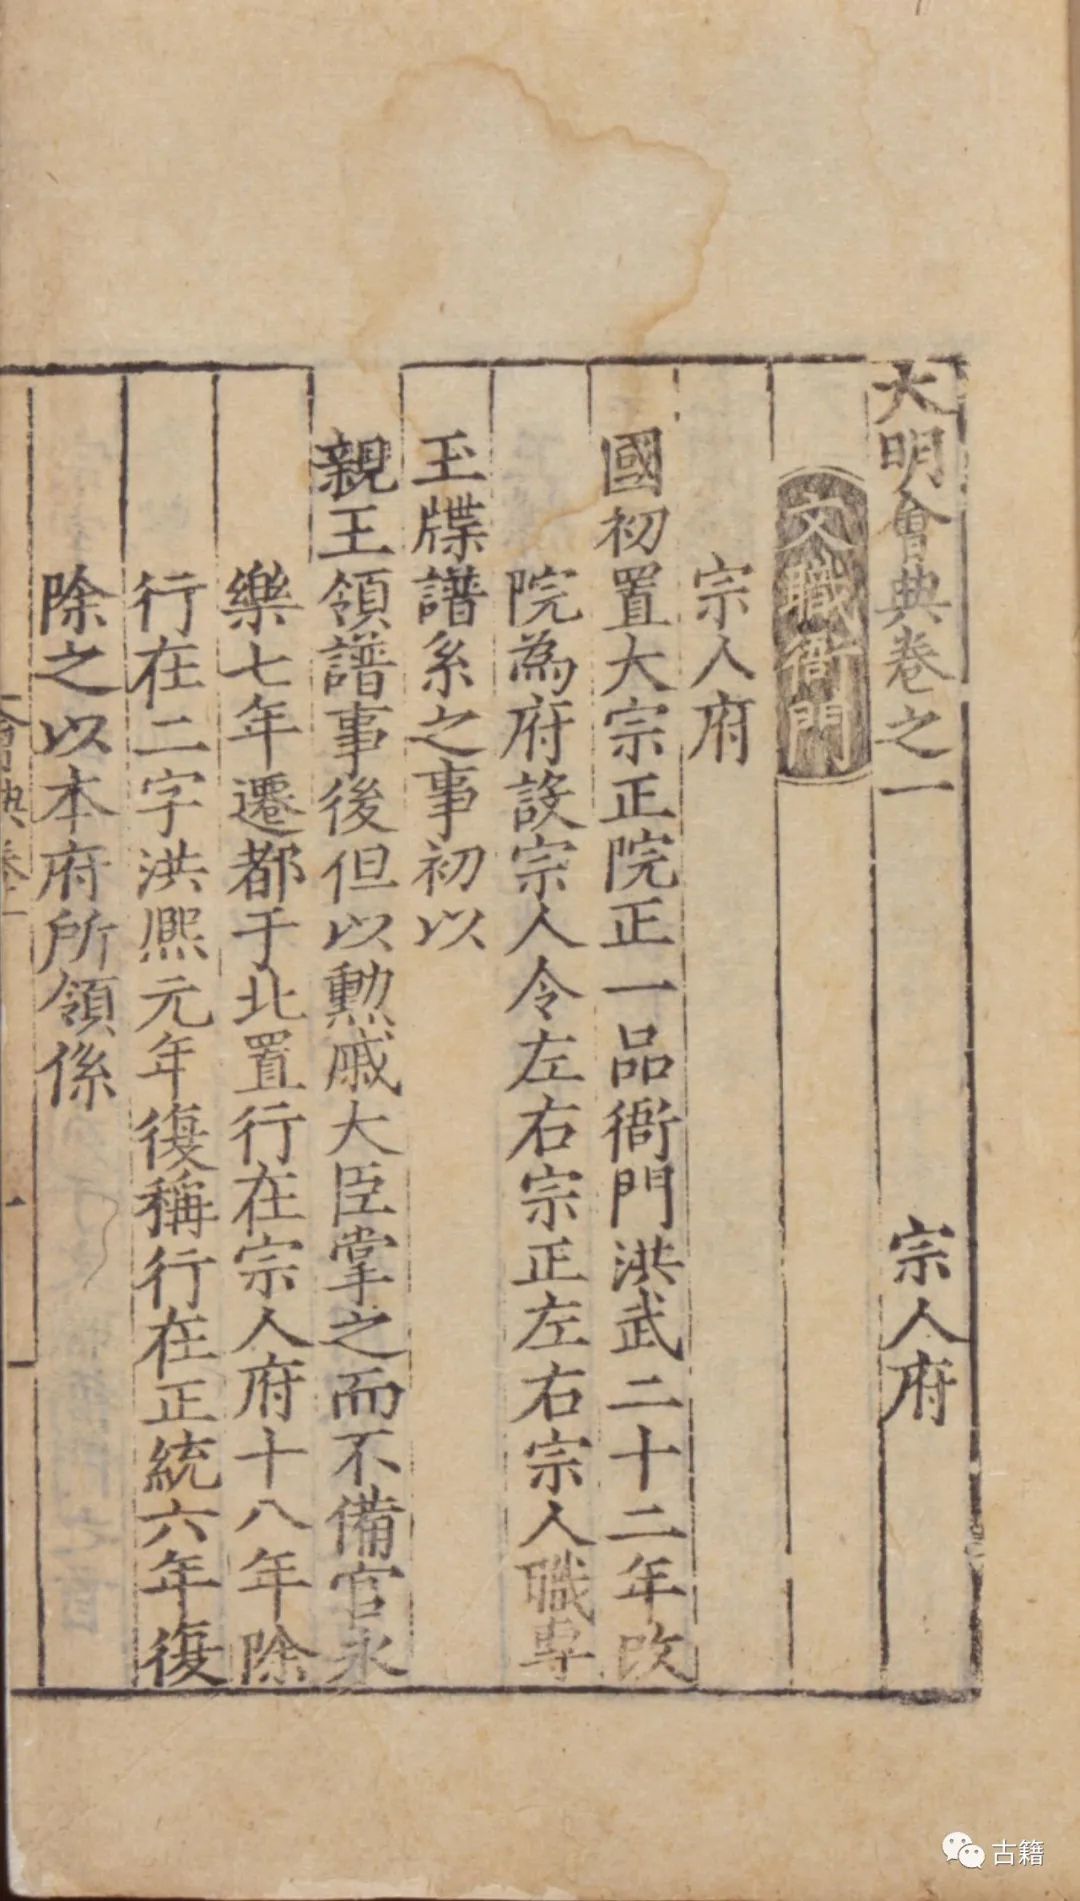 大明會典卷之一　宗人府
文職衙門
宗人府
國初置大宗正院正一品衙門洪武二十二年改
院為府設宗人令左右宗正左右宗人職專
玉牒譜系之事初以
親王領譜事後但以勲戚大臣掌之而不備官永
樂七年遷都于北置行在宗人府十八年除
行在二字洪熙元年復稱行在正統六年復
除之以本府所領係
會典卷一
一
古籍